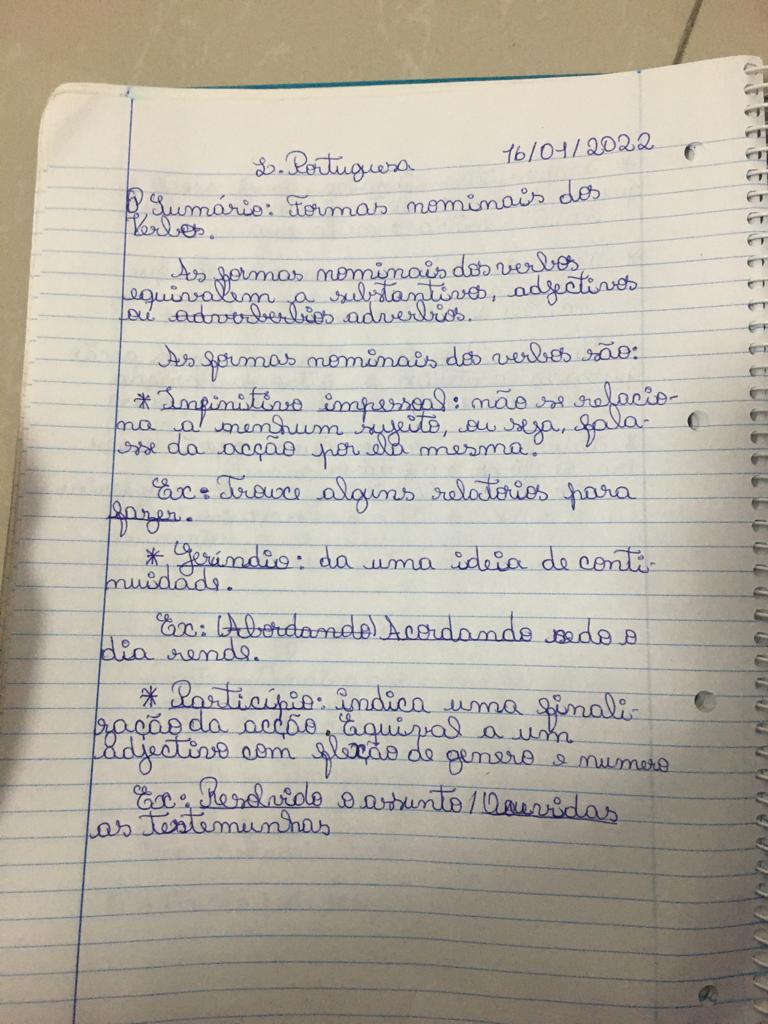 L. Portuguesa 16/01/2022
Sumário: Formas nominais dos
Verbos.
As formas nominais dos verbos
equivalem a substantivos, adjectivos
ou adverberbios adverbios.
As formas nominais dos verbos são:
* Infinitivo impessoal: não se relacio-
na a nenhum sujeito, ou seja, fala-
se da acção por ela mesma.
Ex: Trouxe alguns relatorios para
fazer.
* Gerúndio: da uma ideia de conti-
nuidade.
Ex: (Abordando) Acordando cedo o
dia rende.
* Particípio: indica uma finali-
zação da acção. Equival a um
adjectivo com flexão de genero e numero
Ex: Resolvido o assunto / Ouvidas
as testemunhas